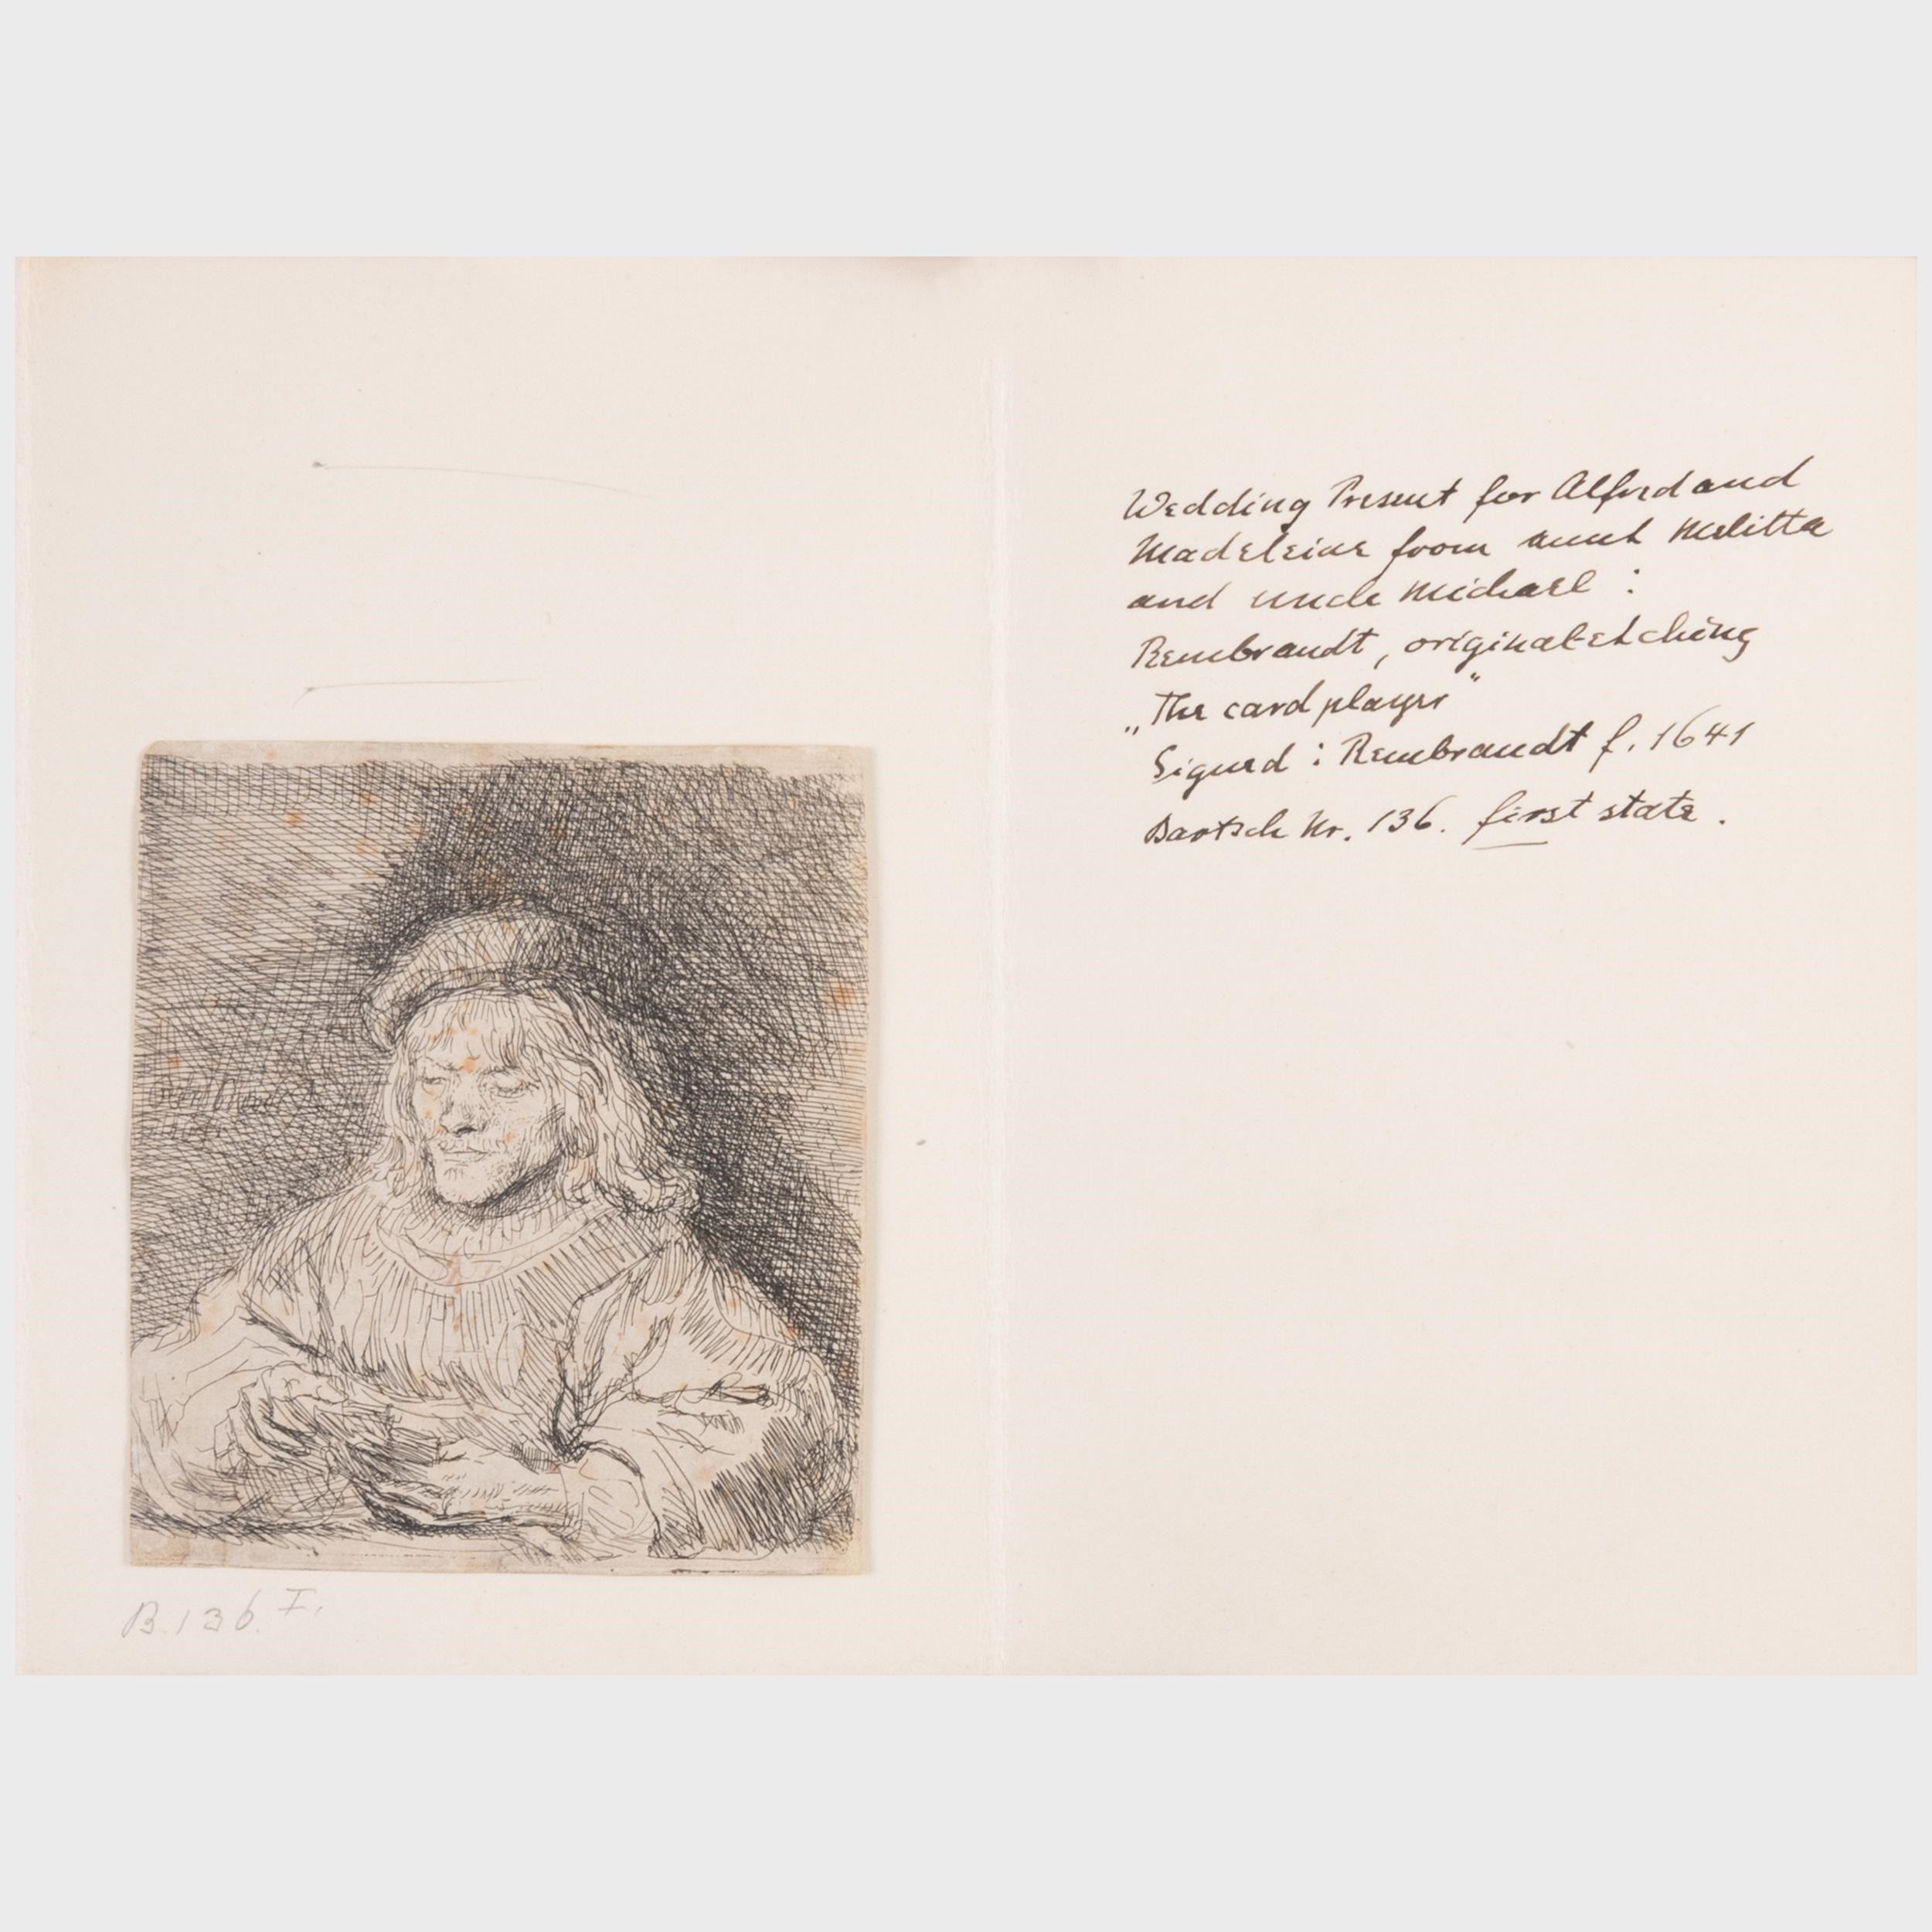 Wedding Present for Alfred and
Madeleine from aunt Melitta
and uncle Michael :
Rembrandt, original-etching
„The card player"
Signed : Rembrandt f. 1641
Bartsch Nr. 136. first state .
B. 136. I.